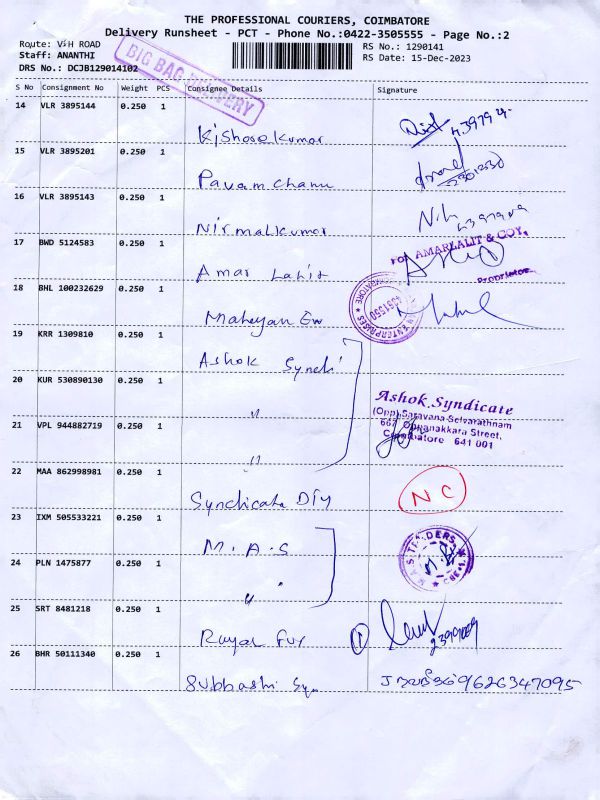 THE PROFESSIONAL COURIERS, COIMBATORE
Delivery Runsheet - PCT - Phone No.:0422-3505555 - Page No.:2
Route: V:H ROAD
RS No.: 1290141
Staff: ANANTHI
RS Date: 15-Dec-2023
DRS No.: DCJB129014102
BIG BAG DELIVERY
S No Consignment No Weight PCS Consignee Details Signature
14 VLR 3895144 0.250 1
Kishore Kumar
15 VLR 3895201 0.250 1
Pavam Chanu
16 VLR 3895143 0.250 1
Nirmalkumar
17 BWD 5124583 0.250 1
FOR AMARLALIT & COY,
Proprietor
Amar Lalit
18 BHL 100232629 0.250 1
ENTERPRISES
Maheyan
19 KRR 1309810 0.250 1
Ashok Syndi
20 KUR 530890130 0.250 1
"
Ashok Syndicate
(Opp) Saravana Selvarathnam
667 Oppanakkara Street,
Coimbatore 641 001
21 VPL 944882719 0.250 1
"
22 MAA 862998981 0.250 1
Syndicate Dry
NC
23 IXM 505533221 0.250 1
M.A.S
M.A.S TRADERS
CBE-1
24 PLN 1475877 0.250 1
"
25 SRT 8481218 0.250 1
Royal Fur
1
26 BHR 50111340 0.250 1
Subbashi Syn
9626347095